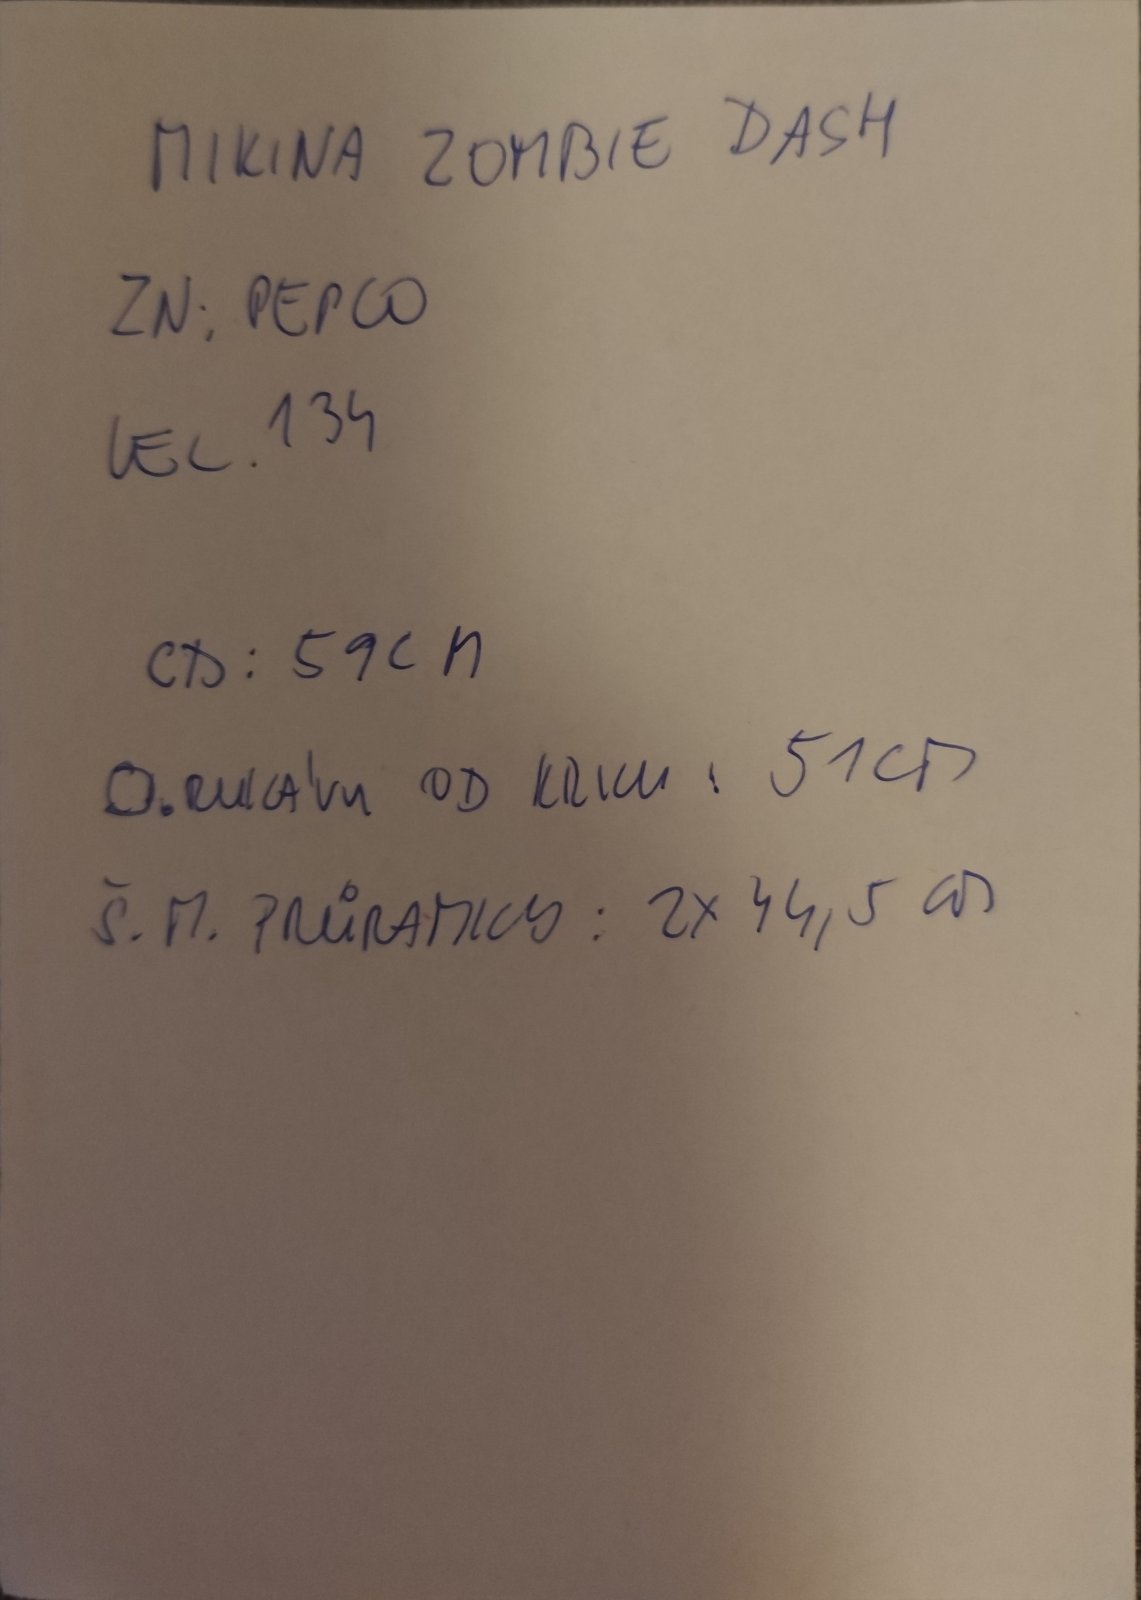 MIKINA ZOMBIE DASH
ZN: PEPCO
VEL. 134
CD: 59CM
D. RUKÁVU OD KRKU: 51CM
Š. M. PRŮRAMKY: 2x 44,5 CM